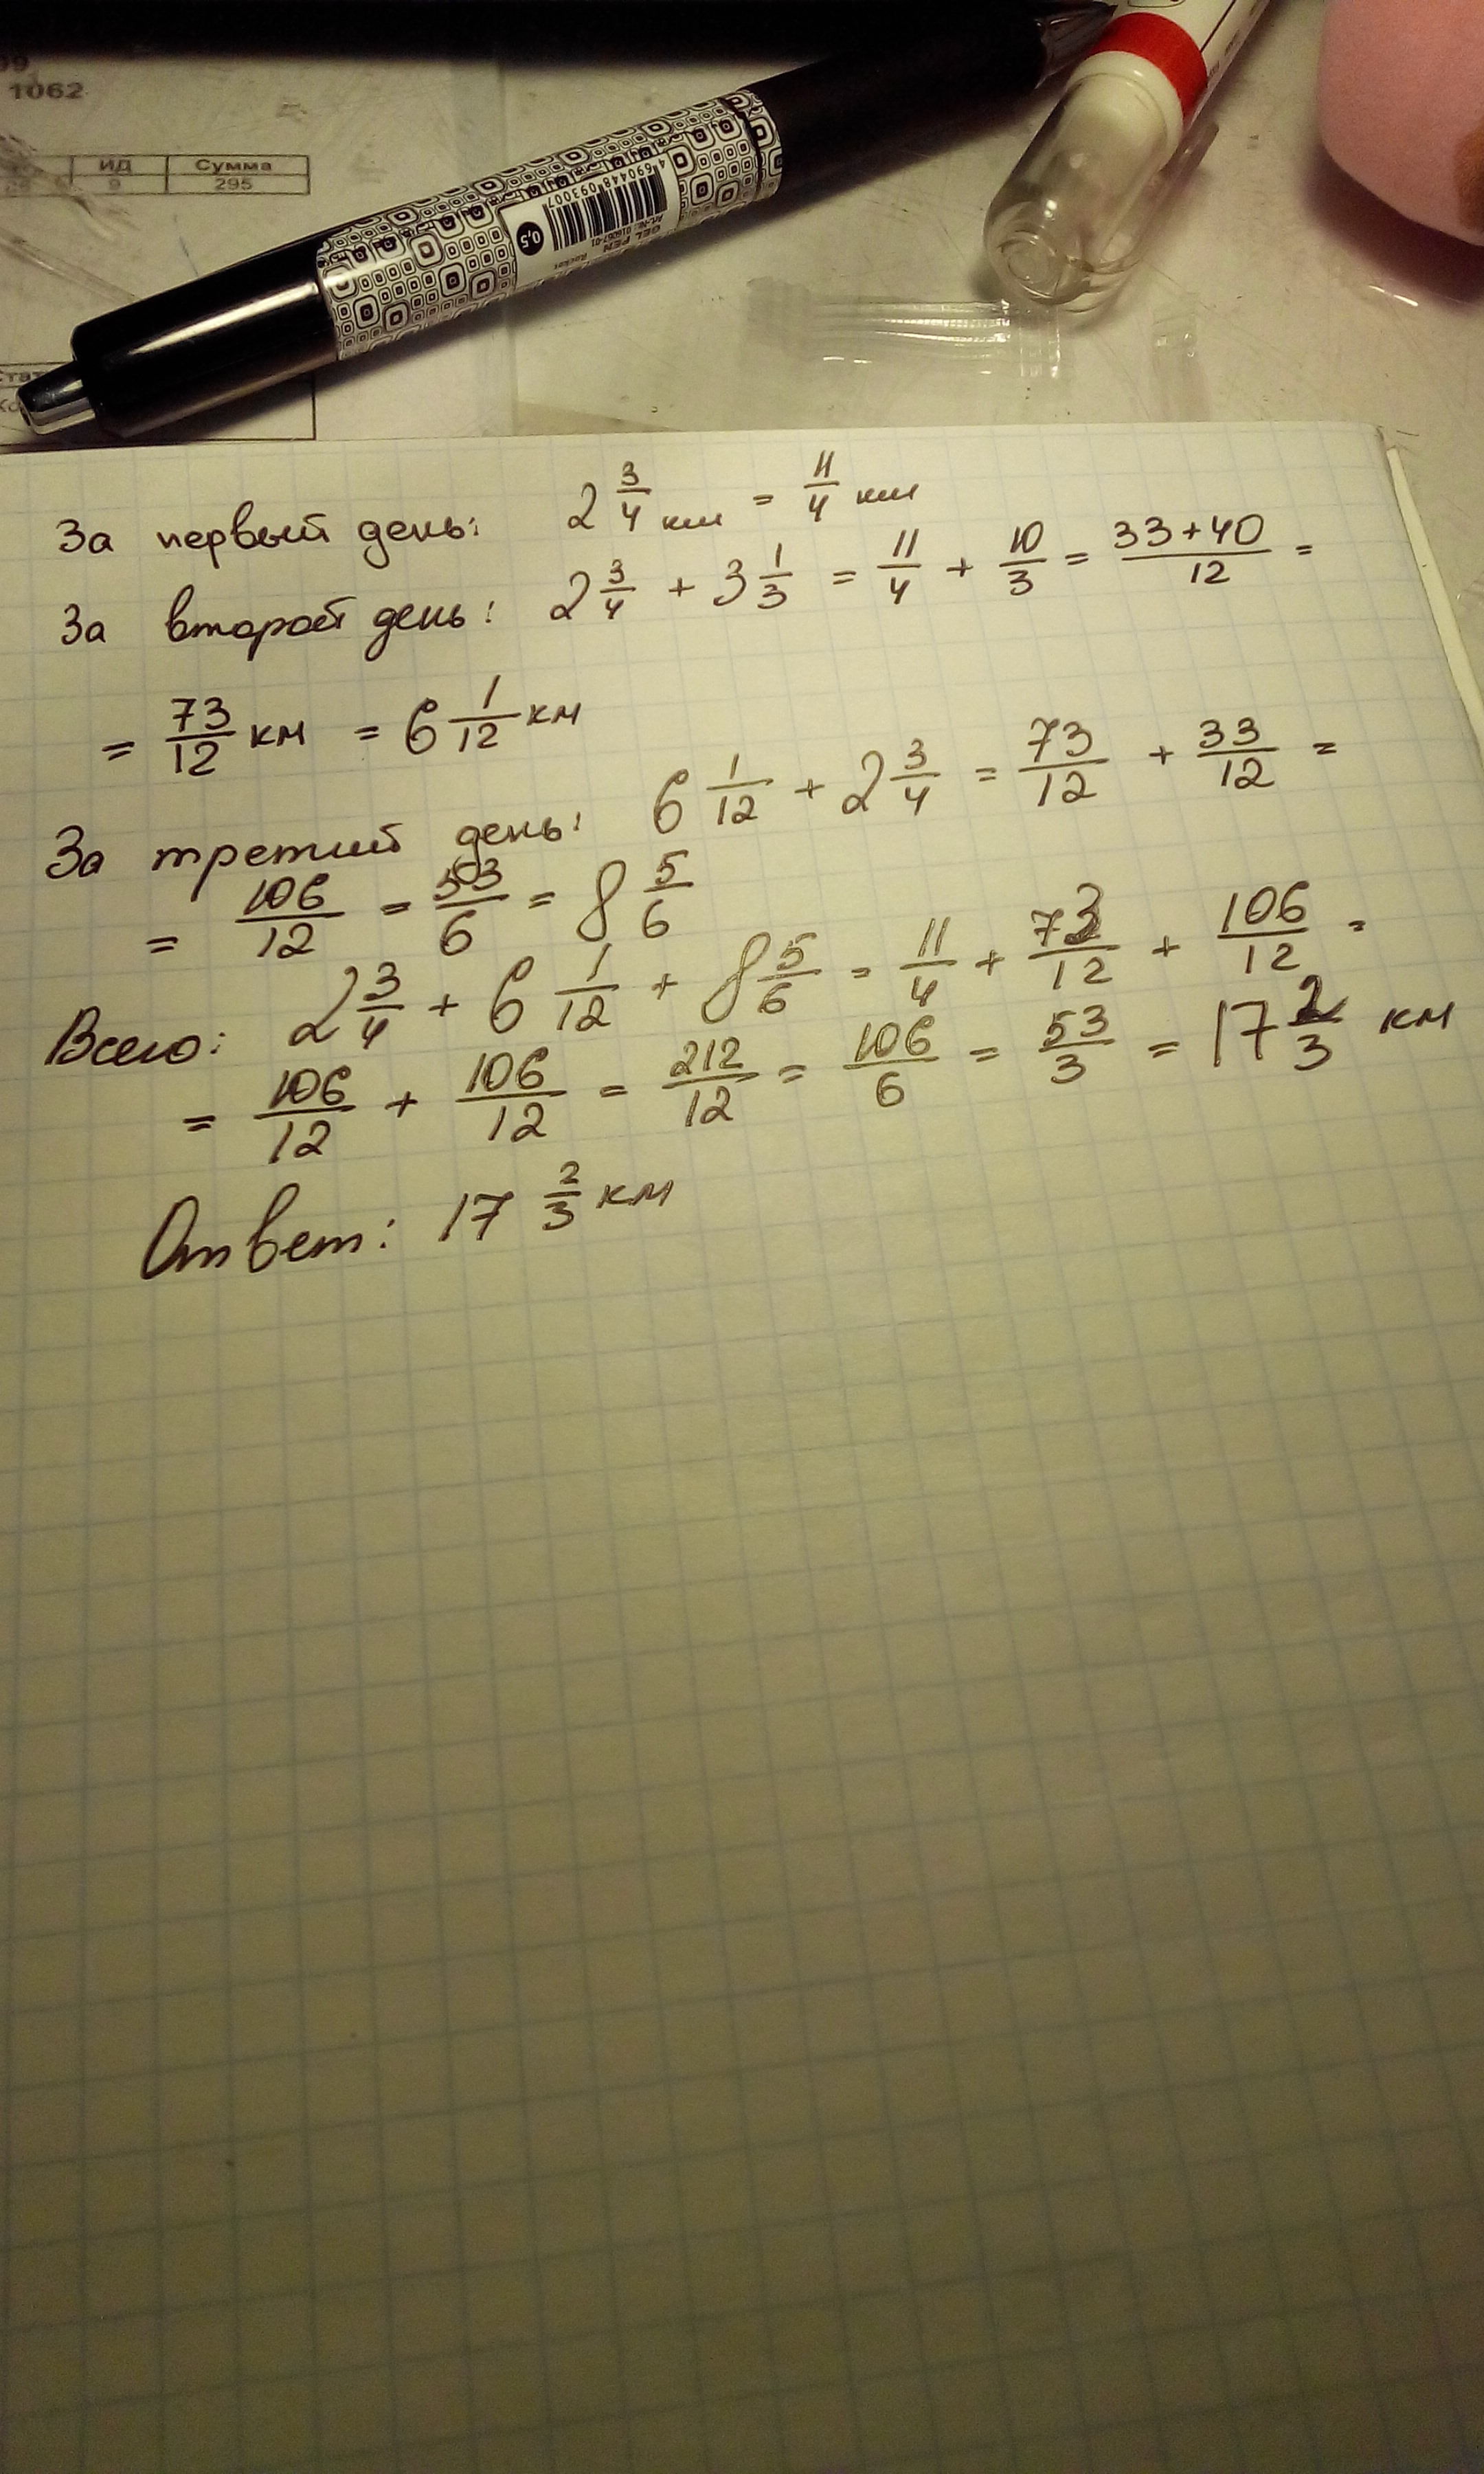 99
1062
ИД Сумма
9 295
4 690448 093007
GEL PEN
0,5
За первый день: 2 3/4 км = 11/4 км
За второй день: 2 3/4 + 3 1/3 = 11/4 + 10/3 = 33+40/12 =
= 73/12 км = 6 1/12 км
За третий день: 6 1/12 + 2 3/4 = 73/12 + 33/12 =
= 106/12 = 53/6 = 8 5/6
Всего: 2 3/4 + 6 1/12 + 8 5/6 = 11/4 + 73/12 + 106/12 =
= 106/12 + 106/12 = 212/12 = 106/6 = 53/3 = 17 2/3 км
Ответ: 17 2/3 км